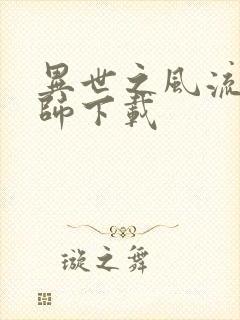 異世之風流
師下載
璇之舞